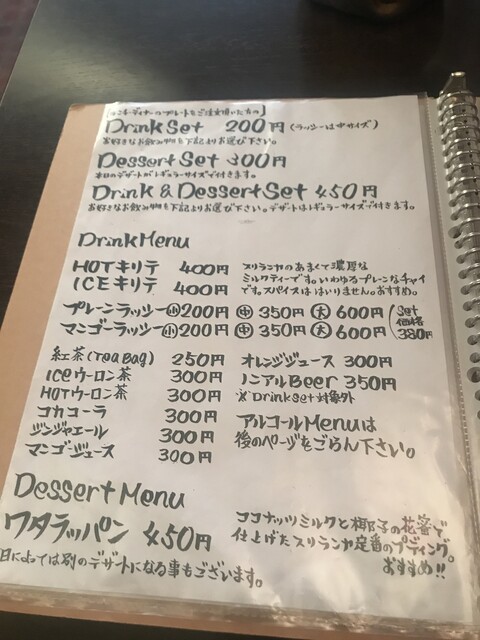 [ランチ・ディナーのプレートをご注文頂いた方の]
Drink Set 200円 (ラッシーは中サイズ)
お好きなお飲み物を下記よりお選び下さい。
Dessert Set 300円
本日のデザートがレギュラーサイズで付きます。
Drink & Dessert Set 450円
お好きなお飲み物を下記よりお選び下さい。デザートはレギュラーサイズで付きます。
Drink Menu
HOTキリテ 400円
ICEキリテ 400円
スリランカのあまくて濃厚な
ミルクティーです。いわゆるプレーンなチャイ
です。スパイスははいりません。おすすめ。
プレーンラッシー小200円 中350円 大600円
マンゴーラッシー小200円 中350円 大600円
Set
価格
380円
紅茶(Tea Bag) 250円
ICEウーロン茶 300円
HOTウーロン茶 300円
コカコーラ 300円
ジンジャエール 300円
マンゴージュース 300円
オレンジジュース 300円
ノンアルBeer 350円
※Drink set 対象外
アルコールMenuは
後のページをごらん下さい。
Dessert Menu
ワタラッパン 450円
ココナッツミルクと椰子の花蜜で
仕上げたスリランカ定番のプディング。
おすすめ!!
日によっては別のデザートになる事もございます。